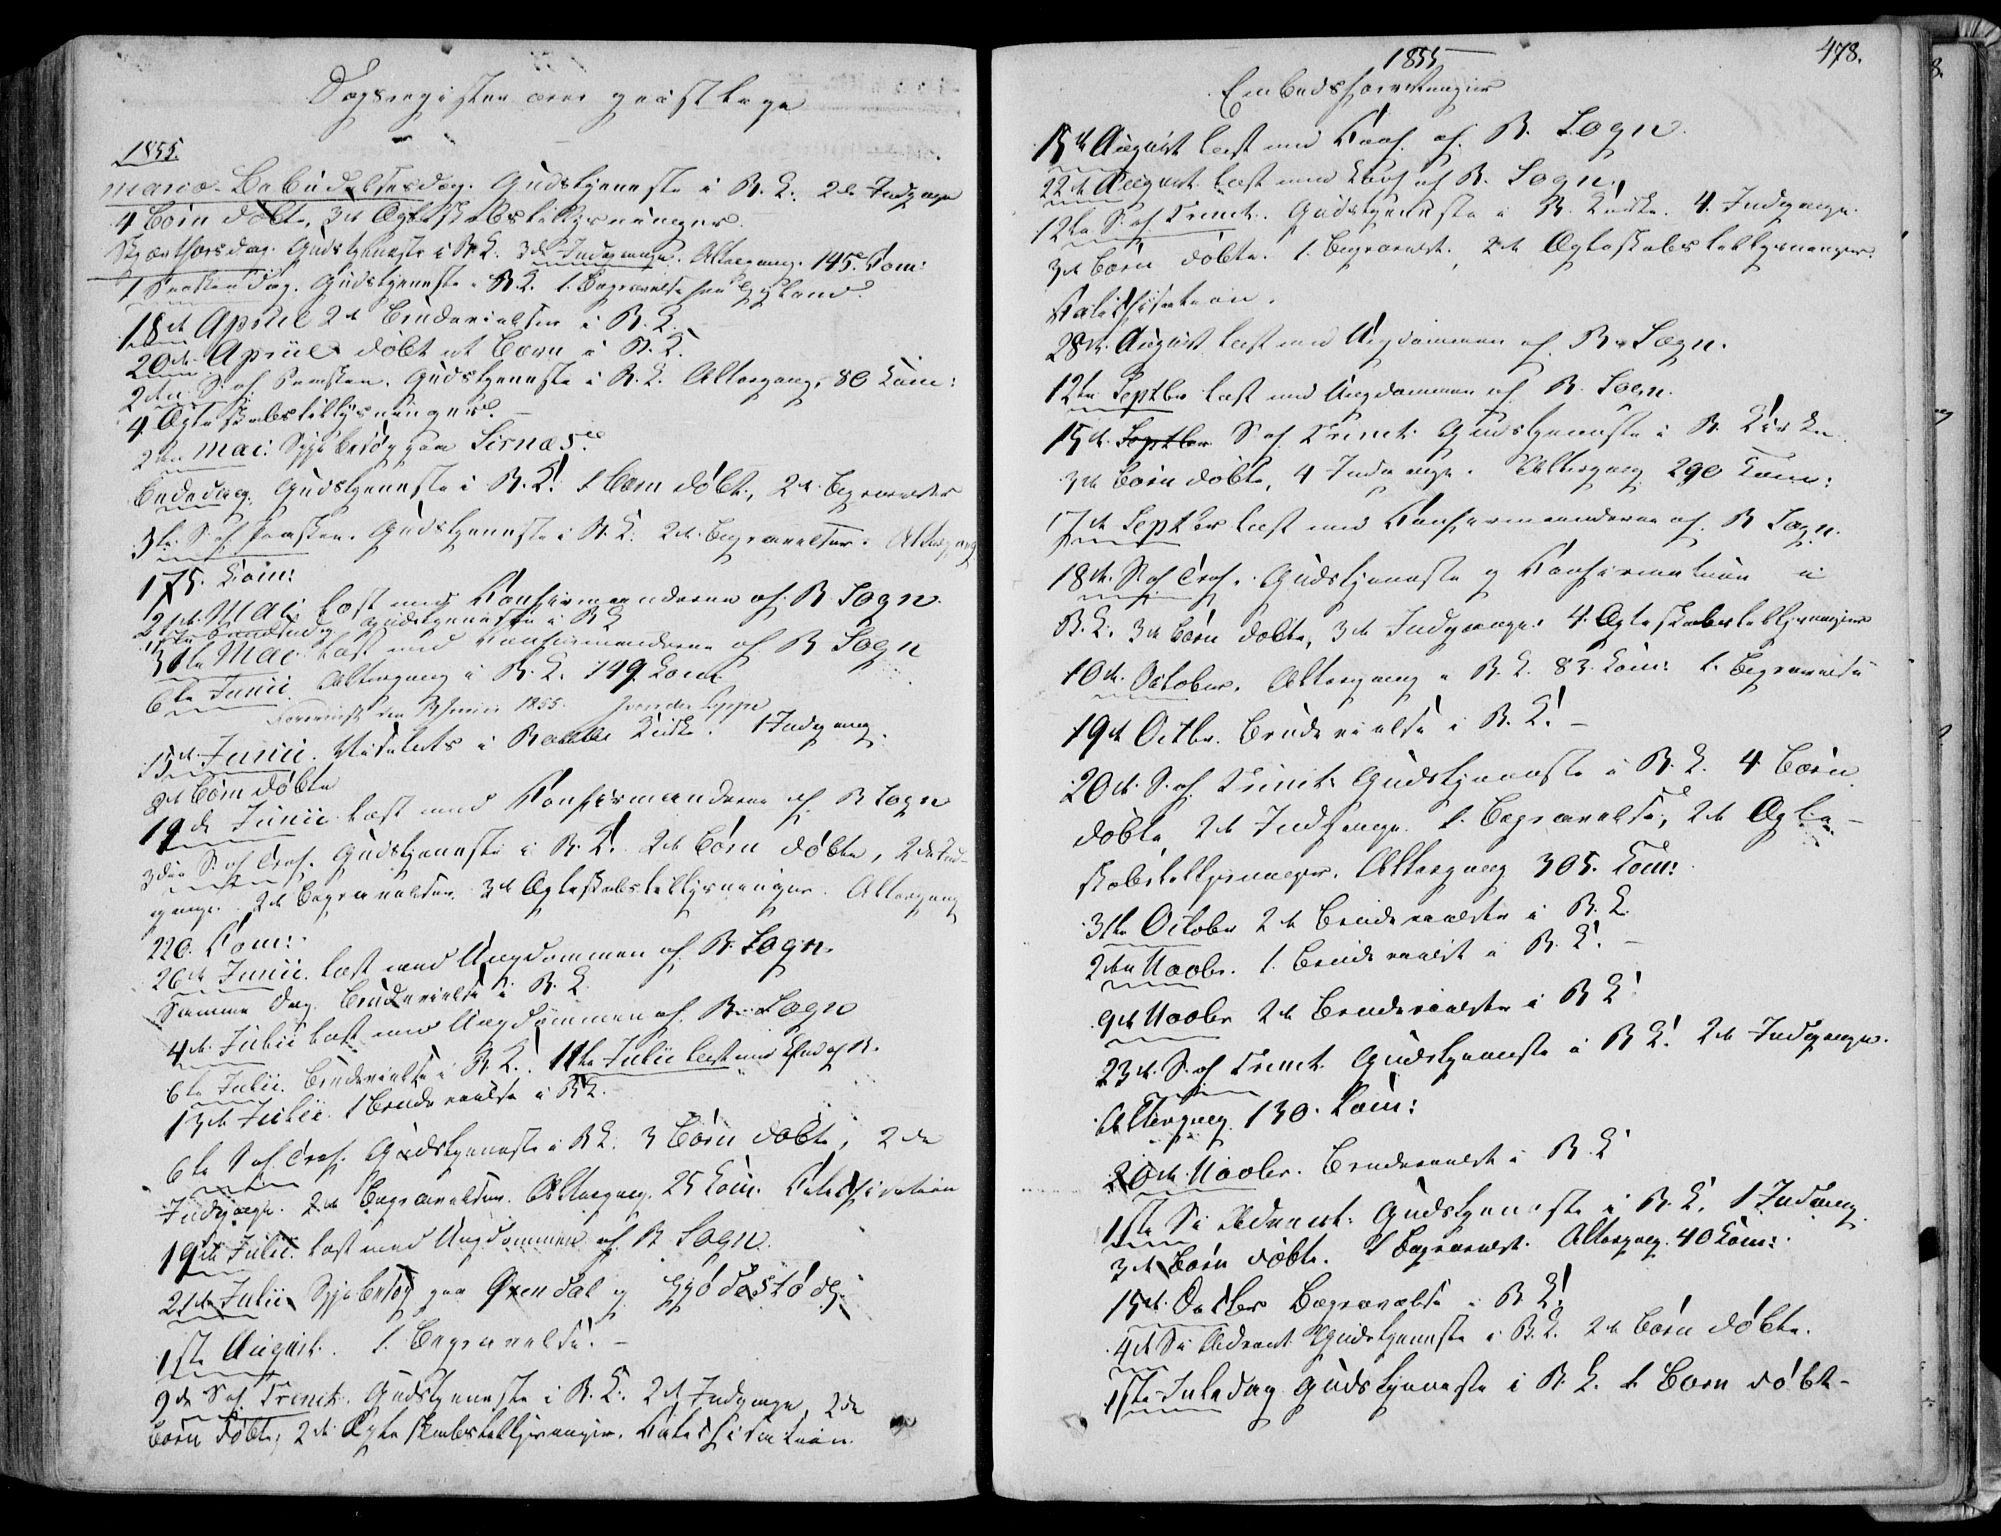 Dagsregister over geistlige
1855.
Mariæ Bebudelsesdag. Gudstjeneste i B. K. 2de Indgange
4 Börn döbte, 3de Ægteskabstillysninger.
Skjærthorsdag. Gudstjeneste i B. K. 3de Indgange. Altergang. 145 Com:
1 Paaskedag. Gudstjeneste i B.K. 1. Begravelse fra Gyland.
18de April 2de Brudevielser i B. K.
20de April döbt et Barn i B. K.
2den S. ef Paasken. Gudstjeneste i B. K. Altergang. 80 Com:
4 Ægteskabstillysninger.
2den Mai. Sygebesög paa Sirnæs.
Bededag. Gudstjeneste i B. K. 1 Barn döbt, 2de Begravelser
3die S. ef. Paasken. Gudstjeneste i B. K. 2de Begravelser. Altergang
175. Com:
21de Mai læst med Confirmanderne af B. Sogn.
Gudstjeneste i B K
31te Mai læst med Confirmanderne af B Sogn
6te Junii. Altergang i B. K. 149 Com
Junii 1855.
13de Junii. Visitats i Bakke Kirke. 1 Indgang.
2de Börn döbte
19de Junii læst med Confirmanderne af B Sogn
3die S. ef Tref. Gudstjeneste i B. K. 2de Börn döbte, 2de Ind-
gange. 2de Begravelser. 3de Ægteskabstillysninger. Altergang
220. Com:
26de Junii. læst med Ungdommen af B. Sogn.
Samme Dag Brudevielse i B. K.
4de Julii læst med Ungdommen af B. Sogn
6te Julii. Brudevielse i B. K. 11te Julii læst med Ung af B.
13de Julii. 1 Brudevielse i B K.
6te S ef. Tref. Gudstjeneste i B K. 3 Börn döbte, 2de
Indgange. 2de Begravelser. Altergang. 25 Com. Catechisation
19de Julii læst med Ungdommen af B Sogn.
21de Julii Sygebesög paa Øxendal og Gjödestöl.
1ste August. 1. Begravelse. –
9de S ef. Trinit. Gudstjeneste i B. K. 2de Indgange, 2de
Börn döbte, 2de Ægteskabstillysninger. Catechisation.
1855
478.
Embedsforretninger
15de August læst med Conf. af B. Sogn.
22de August læst med Conf af B. Sogn.
12te S. ef Trinit. Gudstjeneste i B. Kirke. 4. Indgange.
3de Börn döbte. 1. Begravelse. 2de Ægteskabstillysninger.
Catechisation.
28de August læst med Ungdommen af B. Sogn.
12te Septbr læst med Ungdommen af B. Sogn.
15de Septbr S. ef Trinit. Gudstjeneste i B. Kirke.
3de Börn döbte, 4 Indgange. Altergang 290 Com:
17de Septbr læst med Confirmanderne af B Sogn.
18de S. ef Tref. Gudstjeneste og Confirmation i
B. K. 3de Börn döbte, 3de Indgange. 4. Ægteskabstillysninger
10de October. Altergang i B. K. 83 Com: 1. Begravelse
19de Octbr. Brudevielse i B. K. –
20de S. ef. Trinit: Gudstjeneste i B. K. 4 Börn
döbte, 2de Indgange. 1. Begravelse, 2de Ægte-
skabstillysninger. Altergang 305. Com:
31te October 2de Brudevielser i B. K.
2den Novbr. 1. Brudevielse i B. K. –
9de Novbr 2de Brudevielser i B K
23de S. ef Trinit. Gudstjeneste i B K. 2de Indgange.
Altergang. 130. Com:
Novbr. Brudevielse i B. K
1ste S. i Advent. Gudstjeneste i B. K. 1 Indgang.
3de Börn döbte. 1 Begravelse. Altergang. 40 Com:
15de Decbr Begravelse i B K.
4de S i Advent Gudstjeneste i B. K. 2de Börn döbte.
1ste Juledag Gudstjeneste i B. K. 1 Barn döbt –